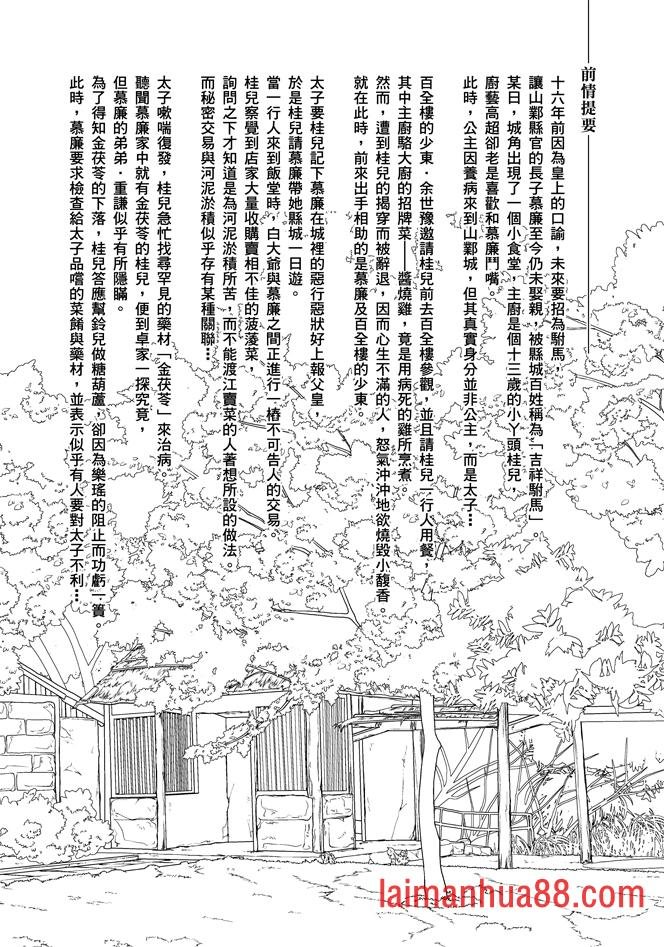 前情提要
十六年前因為皇上的口諭，未來要招為駙馬，
讓山鄴縣官的長子慕廉至今仍未娶親，被縣城百姓稱為「吉祥駙馬」。
某日，城角出現了一個小食堂，主廚是個十三歲的小丫頭桂兒，
廚藝高超卻老是喜歡和慕廉鬥嘴。
此時，公主因養病來到山鄴城，但其真實身分並非公主，而是太子…
百全樓的少東·余世豫邀請桂兒前去百全樓參觀，並且請桂兒一行人用餐，
其中主廚駱大廚的招牌菜——醬燒雞，竟是用病死的雞所烹煮。
然而，遭到桂兒的揭穿而被辭退，因而心生不滿的人，怒氣沖沖地欲燒毀小馥香。
就在此時，前來出手相助的是慕廉及百全樓的少東。
太子要桂兒記下慕廉在城裡的惡行惡狀好上報父皇，
於是桂兒請慕廉帶她縣城一日遊。
當一行人來到飯堂時，白大爺與慕廉之間正進行一樁不可告人的交易。
桂兒察覺到店家大量收購賣相不佳的菠菠菜，
詢問之下才知道是為河泥淤積所苦，而不能渡江賣菜的人著想所設的做法。
而秘密交易與河泥淤積似乎存有某種關聯…
太子嗽喘復發，桂兒急忙找尋罕見的藥材「金茯苓」來治病。
聽聞慕廉家中就有金茯苓的桂兒，便到卓家一探究竟，
但慕廉的弟弟·重謙似乎有所隱瞞。
為了得知金茯苓的下落，桂兒答應幫鈴兒做糖葫蘆，卻因為樂瑤的阻止而功虧一簣。
此時，慕廉要求檢查給太子品嚐的菜餚與藥材，並表示似乎有人要對太子不利…
laimanhua88.com